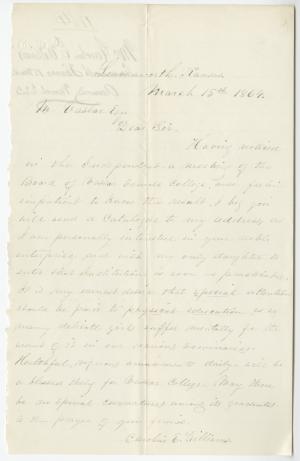 Leavenworth, Kansas
March 15th 1864.
M. Vassar Esq
Dear Sir.
Having noticed
in the Independent a meeting of the
Board of Vassar Female College, and feeling
impatient to know the result, I beg you
will send a Catalogue to my address, as
I am personally interested in your noble
enterprise, and wish my only daughter to
enter that Institution as soon as practicable.
It is my earnest desire that special attention
should be paid to physical education, as so
many delicate girls suffer mentally for the
want of it in our various Seminaries.
Healthful, vigorous amusements daily will be
a blessed thing for Vassar College. May there
be no special among its graduates
is the prayer of your friend.
Caroline E. Williams